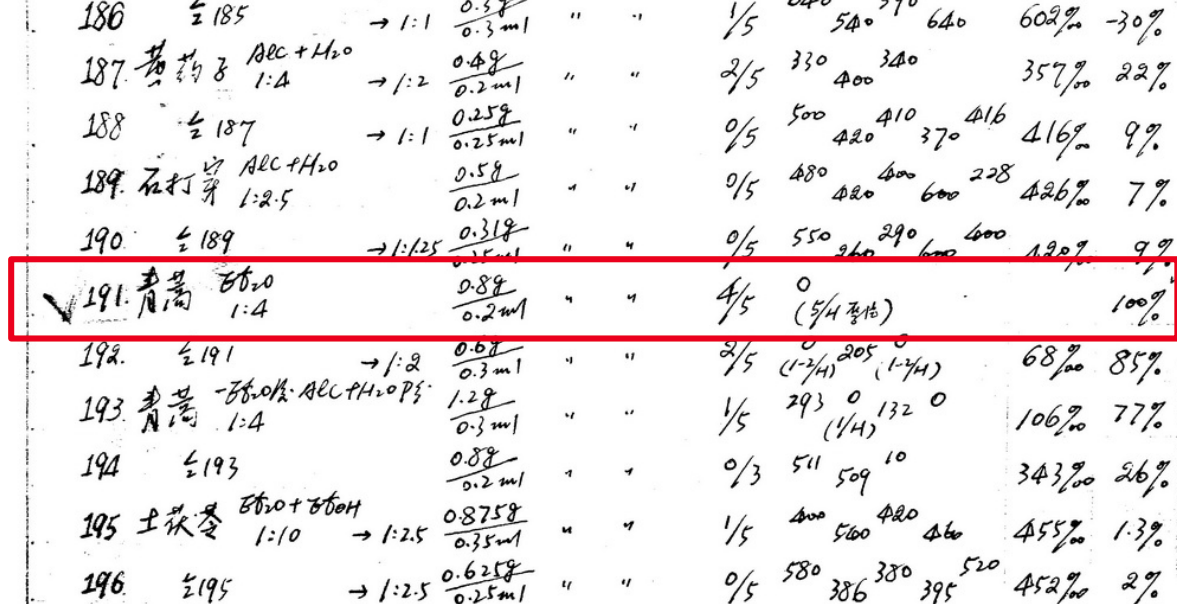 186 仝185 → 1:1 0.3g/0.3ml " " 1/5 540 640 602‱ -30%
187. 黄药子 Alc+H2O 1:4 → 1:2 0.4g/0.2ml " " 2/5 330 400 340 357‱ 22%
188 仝187 → 1:1 0.25g/0.25ml " " 0/5 500 420 410 370 416 416‱ 9%
189. 石打穿 Alc+H2O 1:2.5 0.5g/0.2ml " " 0/5 480 420 400 600 228 426‱ 7%
190. 仝189 → 1:1.25 0.31g/0.25ml " " 0/5 550 260 290 600 400 420‱ 9%
√ 191. 青蒿 Et2O 1:4 0.8g/0.2ml " " 4/5 0 100%
192. 仝191 → 1:2 0.6g/0.3ml " " 2/5 0 (1-2/H) 205 0 (1-2/H) 68‱ 85%
193. 青蒿 -Et2O Alc+H2O 1:4 1.2g/0.3ml " " 1/5 293 0 (1/H) 132 0 106‱ 77%
194 仝193 0.8g/0.2ml " " 0/3 511 509 10 343‱ 26%
195 土茯苓 Et2O+EtOH 1:10 → 1:2.5 0.875g/0.35ml " " 1/5 400 540 420 460 455‱ 1.3%
196. 仝195 → 1:2.5 0.625g/0.25ml " " 0/5 580 386 380 395 520 452‱ 2%